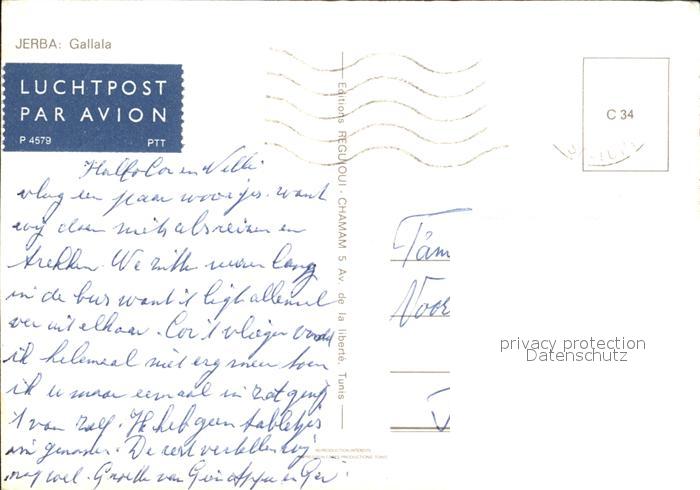 JERBA: Gallala
LUCHTPOST
PAR AVION
P 4579 PTT
C 34
Editions REGUIOUI - CHAMAM 5 Av. de la liberté, Tunis
en
vlug een paar woordjes. want
wij doen niets als reizen en
trekken. We zitten uren lang
in de bus want 't ligt allemaal
ver uit elkaar. Cor 't vliegen
ik helemaal niet erg meer toen
ik er maar eenmaal in zat ging
't van zelf. Ik heb geen tabletjes
in genomen. De rest vertellen wij
nog wel. Groetjes van en
Fam
Voor
privacy protection
Datenschutz